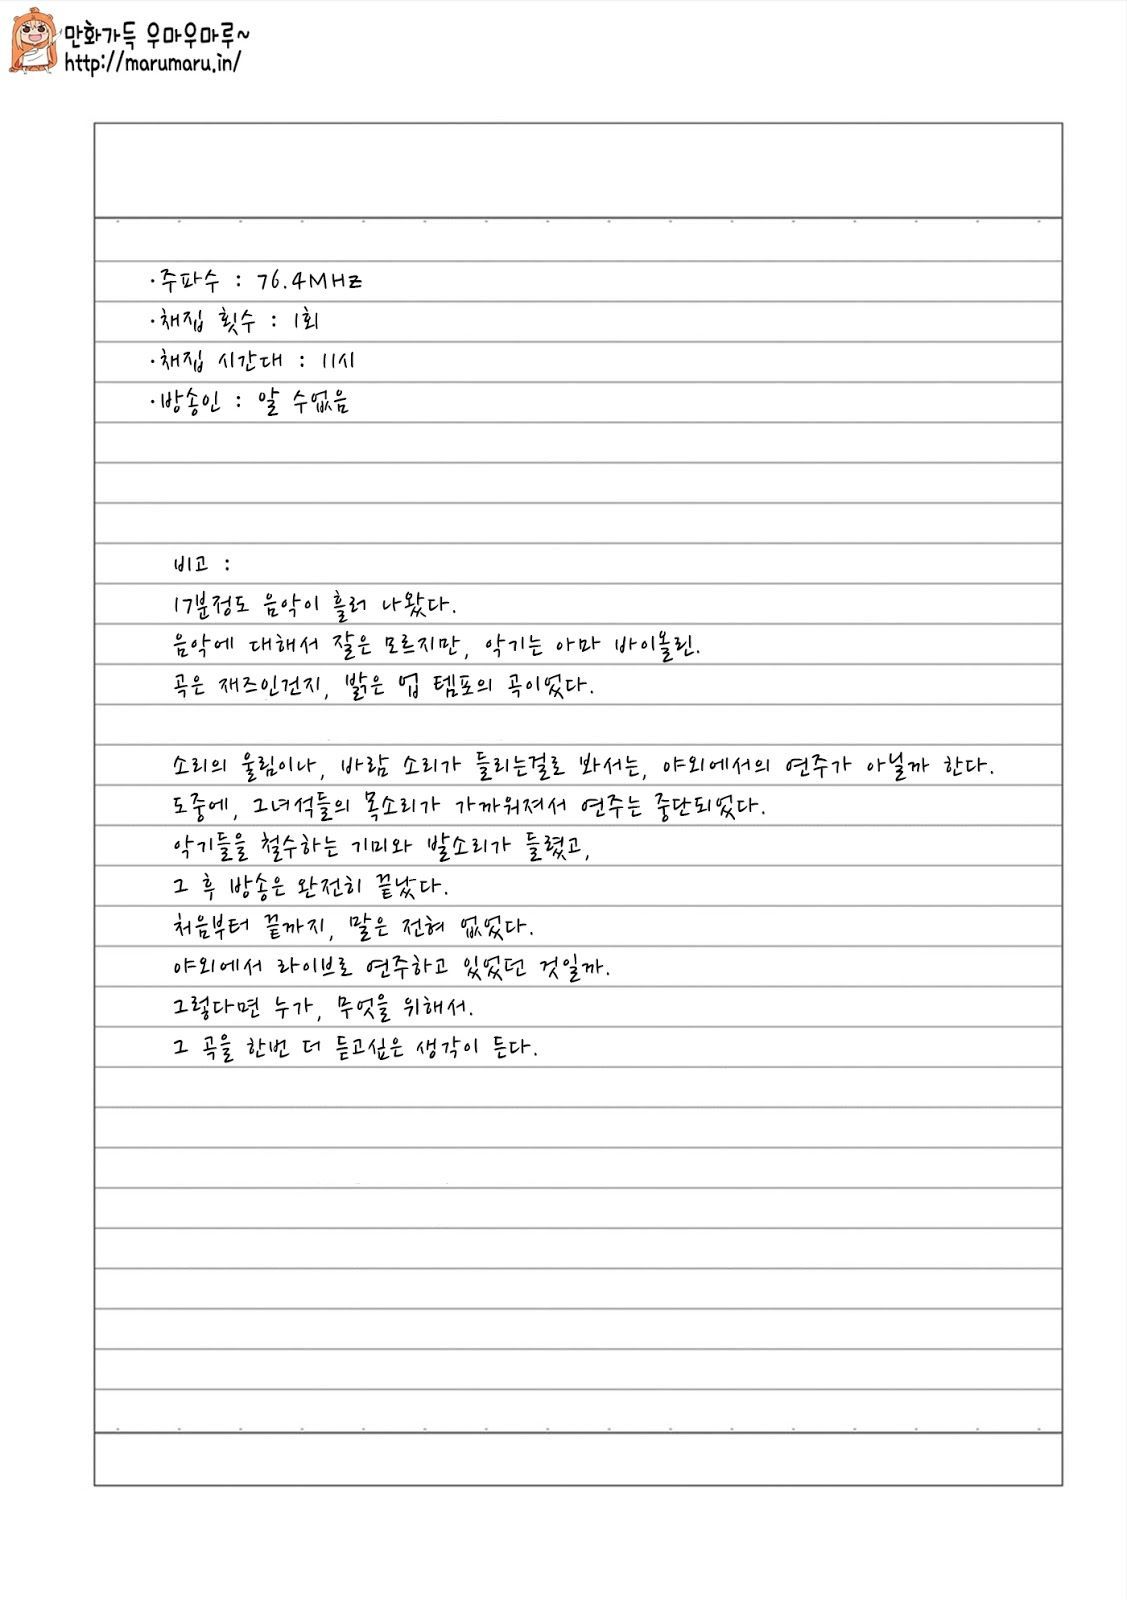 만화가득 우마우마루~
http://marumaru.in/
·주파수 : 76.4MHz
·채집 횟수 : 1회
·채집 시간대 : 11시
·방송인 : 알 수없음
비고 :
17분정도 음악이 흘러 나왔다.
음악에 대해서 잘은 모르지만, 악기는 아마 바이올린.
곡은 재즈인건지, 밝은 업 템포의 곡이었다.
소리의 울림이나, 바람 소리가 들리는걸로 봐서는, 야외에서의 연주가 아닐까 한다.
도중에, 그녀석들의 목소리가 가까워져서 연주는 중단되었다.
악기들을 철수하는 기미와 발소리가 들렸고,
그 후 방송은 완전히 끝났다.
처음부터 끝까지, 말은 전혀 없었다.
야외에서 라이브로 연주하고 있었던 것일까.
그렇다면 누가, 무엇을 위해서.
그 곡을 한번 더 듣고싶은 생각이 든다.